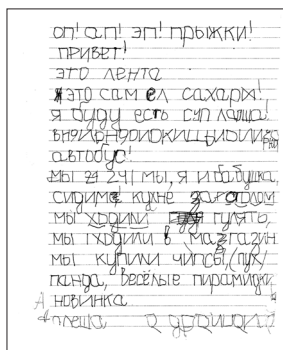 оп! ап! эп! прыжки!
привет!
это лента
это сам ел сахарж!
я буду есть суп лапша!
автобус!
мы 241 мы, я и бабушка,
сидиме кухне за столом
мы ходили гулять,
мы ходили в магазин
мы купили чипсы, (пух)
панда, весёлые пирамидки
новинка